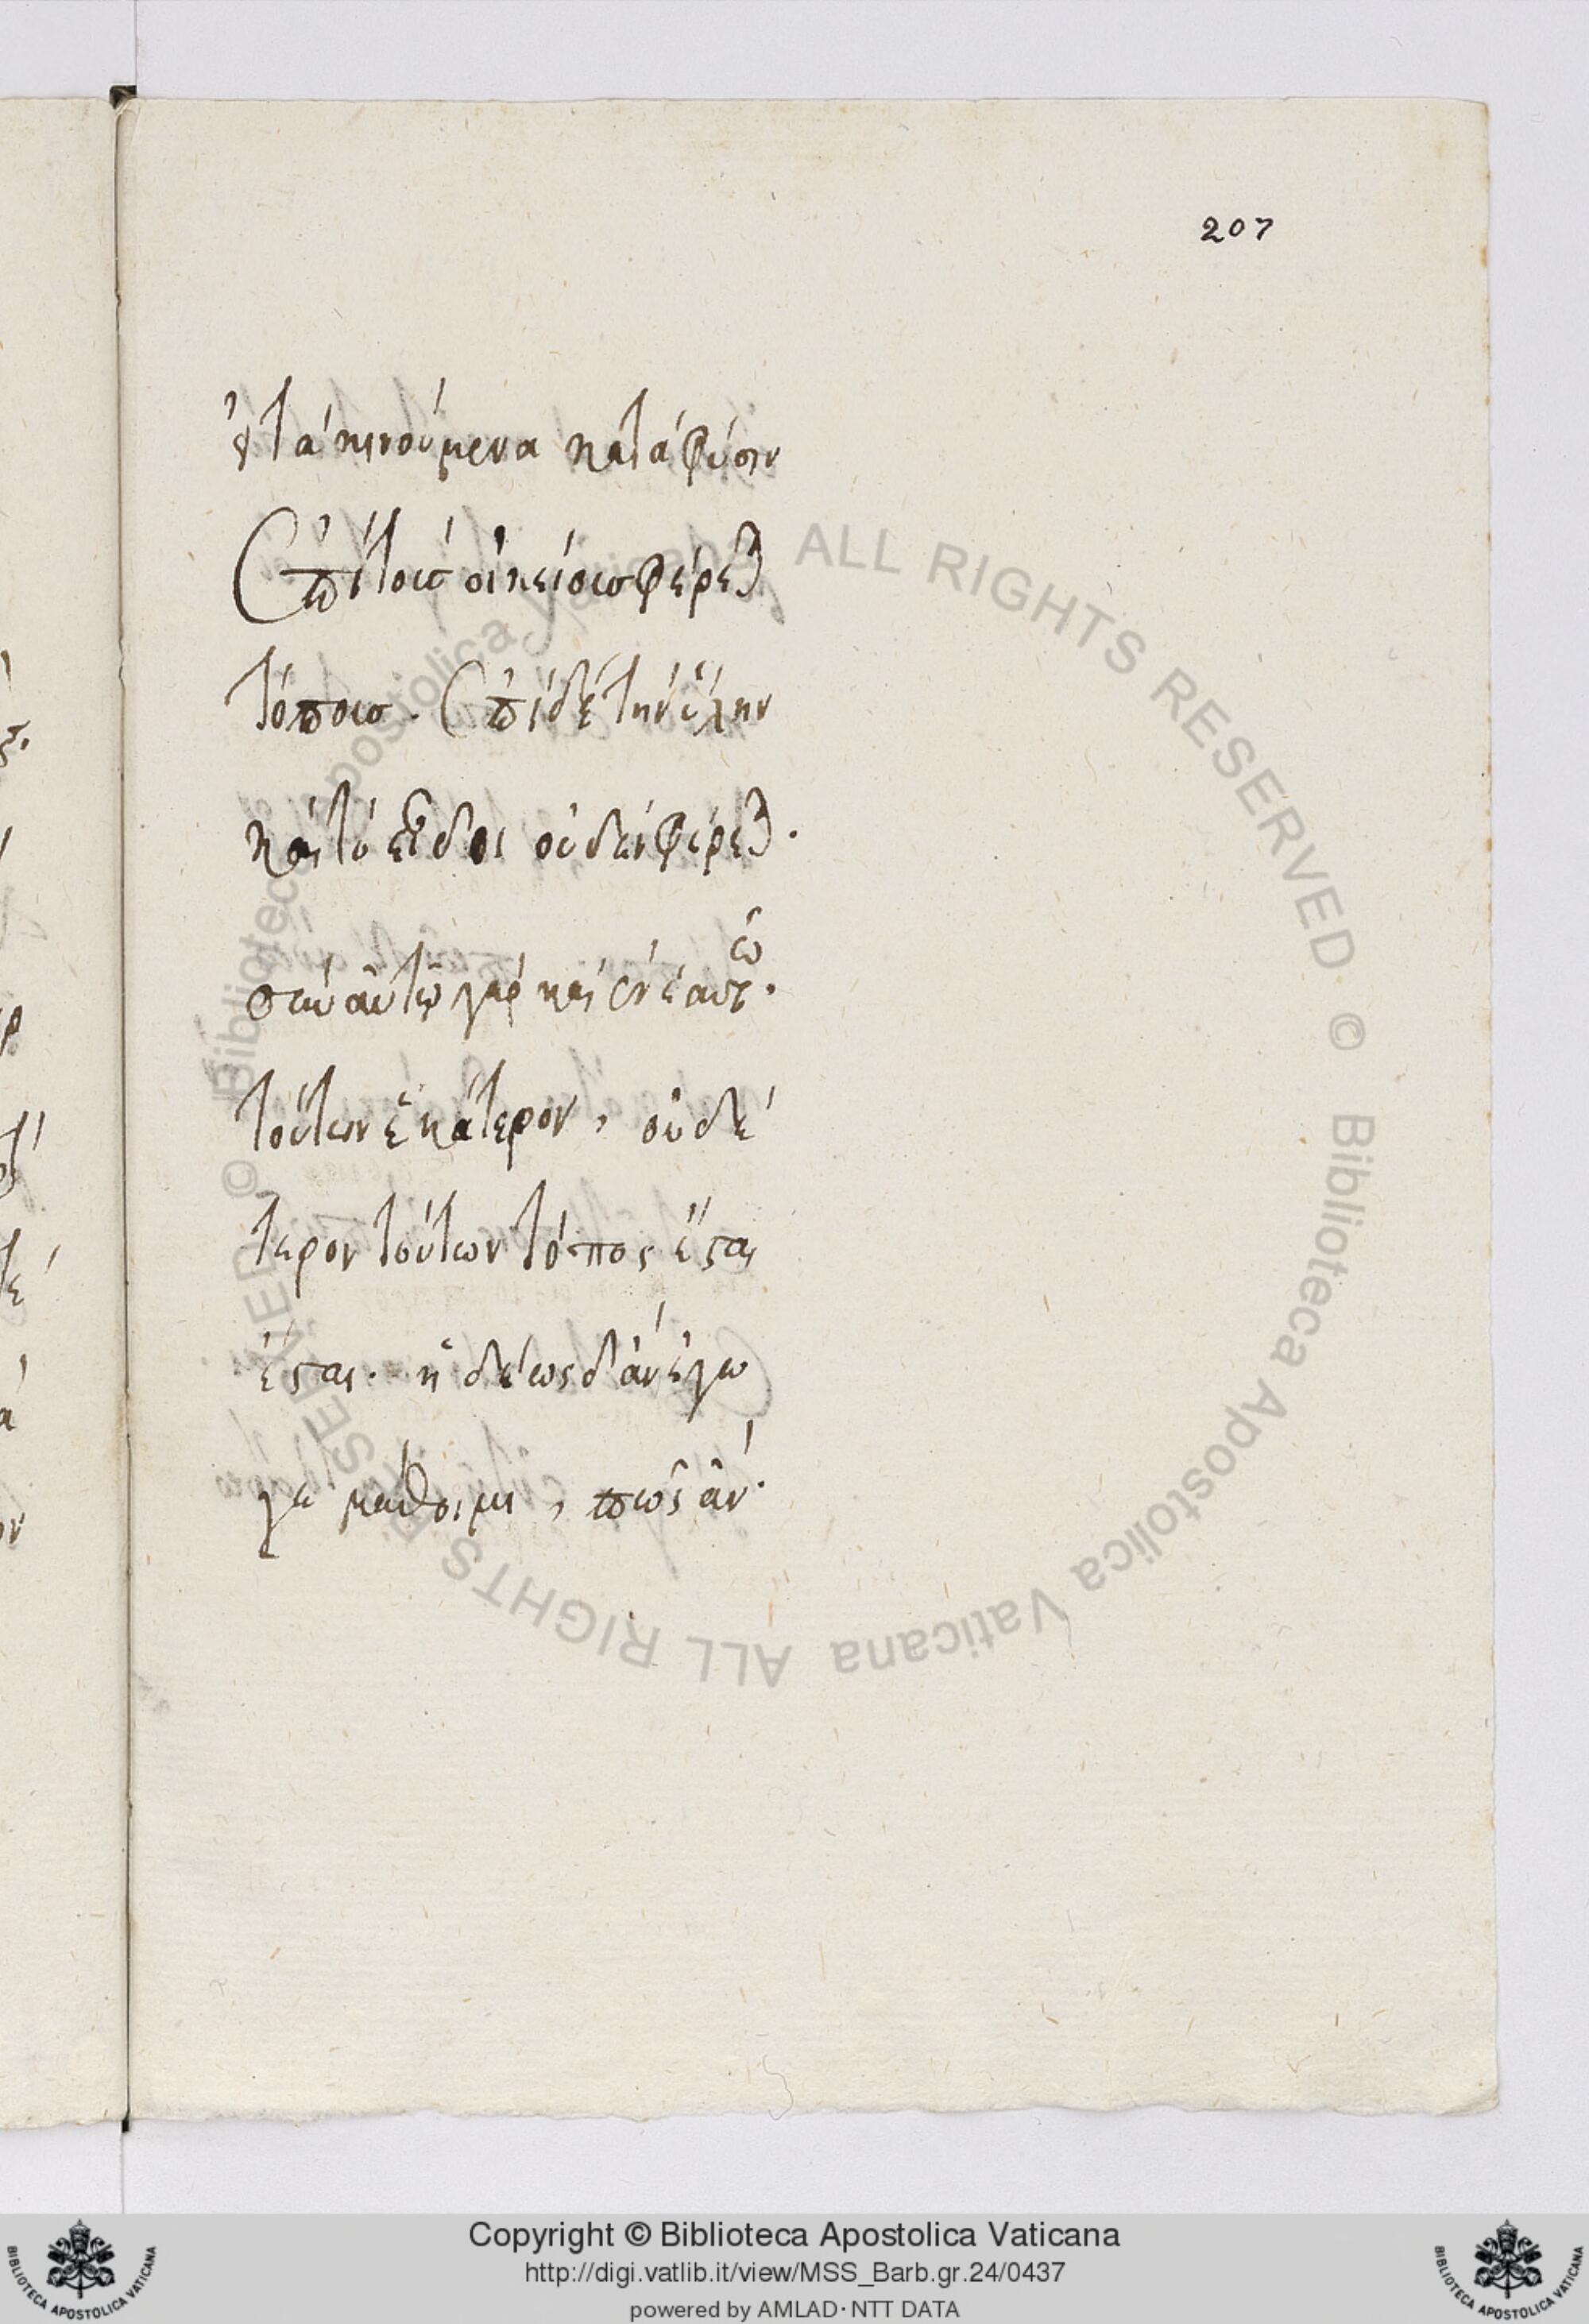 207
ὅτι τὰ κινούμενα κατὰ φύσιν
ἐπὶ τοῖς οἰκείοις φέρεται
τόποις. ἐπὶ δὲ τὴν ὕλην
καὶ τὸ εἶδος οὐδὲν φέρεται.
σὺν αὐτῷ γὰρ καὶ ἐν ἑαυτῷ.
τούτων ἑκάτερον, οὐδέ
τερον τούτων τόπος ἔσται
ἔσται. ἡδέως δ' ἂν ἐγώ
γε μάθοιμι, πῶς ἂν.
ALL RIGHTS RESERVED © Biblioteca Apostolica Vaticana ALL RIGHTS RESERVED © Biblioteca Apostolica Vaticana
Copyright © Biblioteca Apostolica Vaticana
http://digi.vatlib.it/view/MSS_Barb.gr.24/0437
powered by AMLAD·NTT DATA
BIBLIOTECA APOSTOLICA VATICANA
BIBLIOTECA APOSTOLICA VATICANA